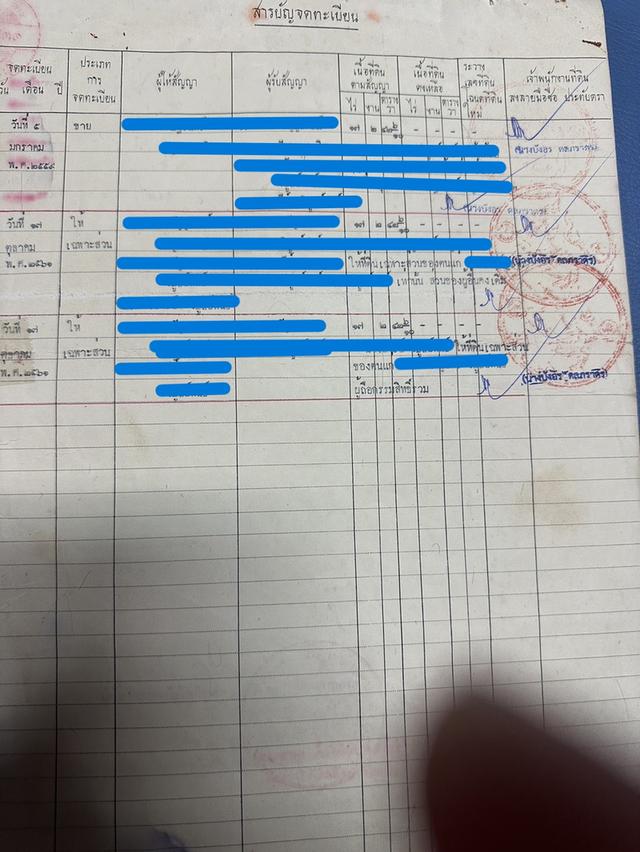 สารบัญจดทะเบียน
จดทะเบียน
วัน เดือน ปี
ประเภท
การ
จดทะเบียน
ผู้ให้สัญญา
ผู้รับสัญญา
เนื้อที่ดิน
ตามสัญญา
ไร่ งาน ตาราง
วา
เนื้อที่ดิน
คงเหลือ
ไร่ งาน ตาราง
วา
ระวาง
เลขที่ดิน
โฉนดที่ดิน
ใหม่
เจ้าพนักงานที่ดิน
ลงลายมือชื่อ ประทับตรา
วันที่ ๕ ขาย ๑๗ ๒ - - - -
มกราคม
พ.ศ.๒๕๕๙
วันที่ ๑๗ ให้ ๑๗ ๒ - - - -
ตุลาคม เฉพาะส่วน
พ.ศ.๒๕๖๑ ให้ที่ดินเฉพาะส่วนของตนแก่
เท่านั้น ส่วนของผู้อื่นคงเดิม
วันที่ ๑๗ ให้ ๑๗ ๒ - - - -
ตุลาคม เฉพาะส่วน ให้ที่ดินเฉพาะส่วน
พ.ศ.๒๕๖๑ ของตนแก่
ผู้ถือกรรมสิทธิ์รวม